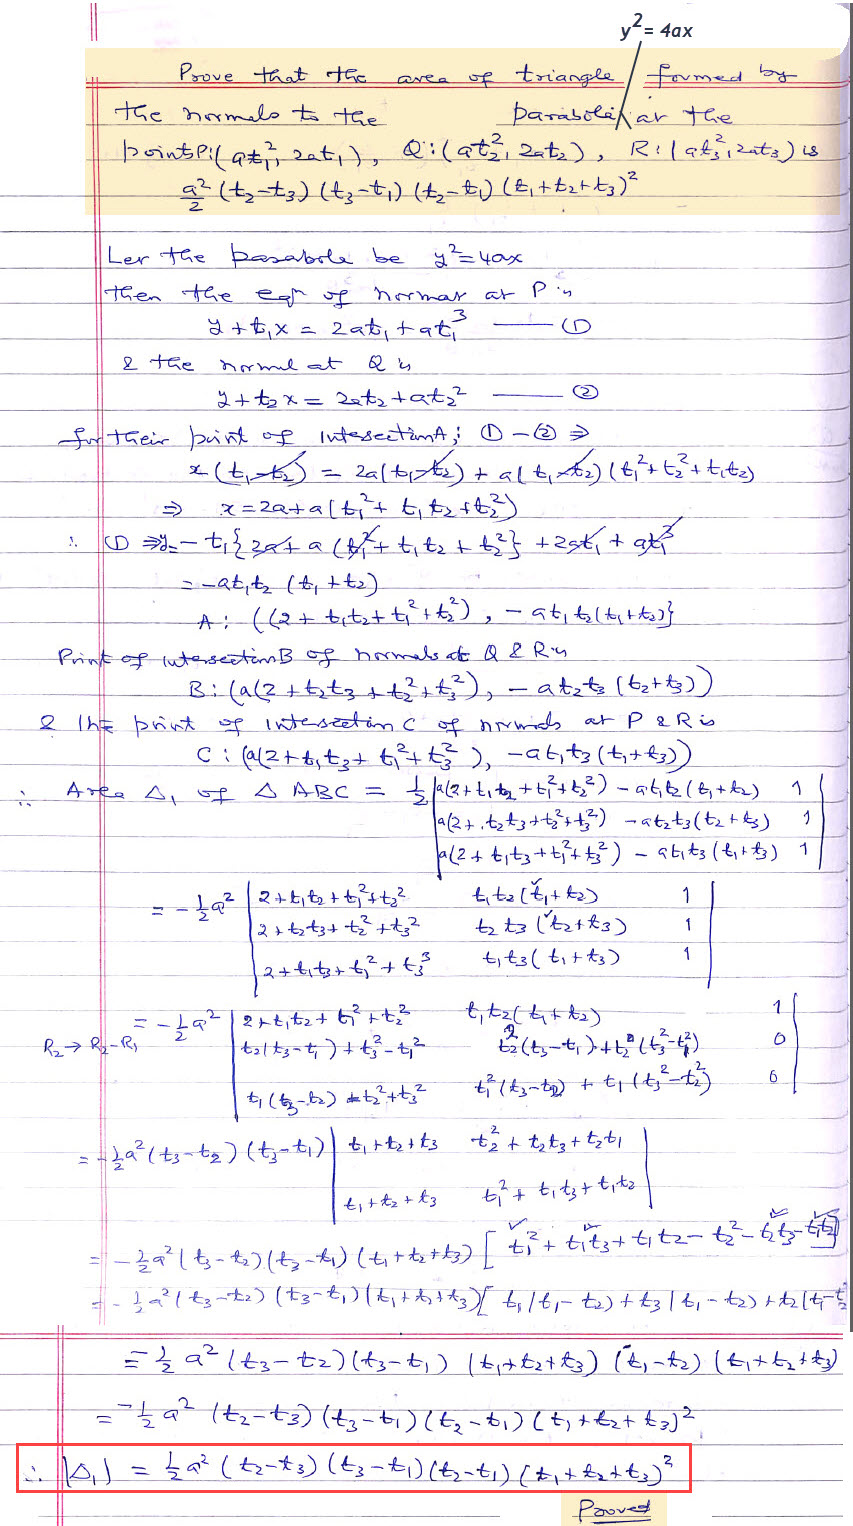 y² = 4ax
Prove that the area of triangle formed by
the normals to the parabola at the
points P:(at₁², 2at₁), Q:(at₂², 2at₂), R:(at₃², 2at₃) is
a²/2 (t₂-t₃) (t₃-t₁) (t₂-t₁) (t₁+t₂+t₃)²
Let the parabola be y²=4ax
then the eqⁿ of normal at P is
y + t₁x = 2at₁ + at₁³ —— ①
& the normal at Q is
y + t₂x = 2at₂ + at₂² —— ②
for their point of intersection A; ① - ② ⇒
x(t₁-t₂) = 2a(t₁-t₂) + a(t₁-t₂)(t₁²+t₂²+t₁t₂)
⇒ x = 2a + a(t₁² + t₁t₂ + t₂²)
∴ ① ⇒ y = - t₁{2a + a(t₁² + t₁t₂ + t₂²} + 2at₁ + at₁³
= -at₁t₂ (t₁ + t₂)
A: ((2 + t₁t₂ + t₁² + t₂²), - at₁t₂(t₁+t₂)}
Point of intersection B of normals at Q & R is
B: (a(2 + t₂t₃ + t₂² + t₃²), - at₂t₃ (t₂+t₃))
& the point of intersection C of normals at P & R is
C: (a(2 + t₁t₃ + t₁² + t₃²), -at₁t₃(t₁+t₃))
∴ Area Δ₁ of Δ ABC = 1/2 |a(2+t₁t₂+t₁²+t₂²) - at₁t₂(t₁+t₂) 1|
|a(2+t₂t₃+t₂²+t₃²) - at₂t₃(t₂+t₃) 1|
|a(2+t₁t₃+t₁²+t₃²) - at₁t₃(t₁+t₃) 1|
= - 1/2 a² |2+t₁t₂+t₁²+t₂² t₁t₂(t₁+t₂) 1|
|2+t₂t₃+t₂²+t₃² t₂t₃(t₂+t₃) 1|
|2+t₁t₃+t₁²+t₃³ t₁t₃(t₁+t₃) 1|
= - 1/2 a² |2+t₁t₂+t₁²+t₂² t₁t₂(t₁+t₂) 1|
R₂→R₂-R₁ |t₂(t₃-t₁)+t₃²-t₁² t₂²(t₃-t₁)+t₂(t₃²-t₁²) 0|
|t₁(t₃-t₂)-t₂²+t₃² t₁²(t₃-t₂) + t₁(t₃²-t₂²) 0|
= - 1/2 a² (t₃-t₂) (t₃-t₁) |t₁+t₂+t₃ t₂² + t₂t₃ + t₂t₁|
|t₁+t₂+t₃ t₁² + t₁t₃ + t₁t₂|
= - 1/2 a² (t₃-t₂)(t₃-t₁) (t₁+t₂+t₃) [t₁² + t₁t₃ + t₁t₂ - t₂² - t₂t₃ - t₁t₂]
= - 1/2 a² (t₃-t₂) (t₃-t₁)(t₁+t₂+t₃)[t₁(t₁-t₂) + t₃(t₁-t₂) + t₂(t₁-t₂
= - 1/2 a² (t₃-t₂)(t₃-t₁) (t₁+t₂+t₃) (t₁-t₂) (t₁+t₂+t₃)
= - 1/2 a² (t₂-t₃) (t₃-t₁) (t₂-t₁) (t₁+t₂+t₃)²
∴ |Δ₁| = 1/2 a² (t₂-t₃) (t₃-t₁) (t₂-t₁) (t₁+t₂+t₃)²
Proved